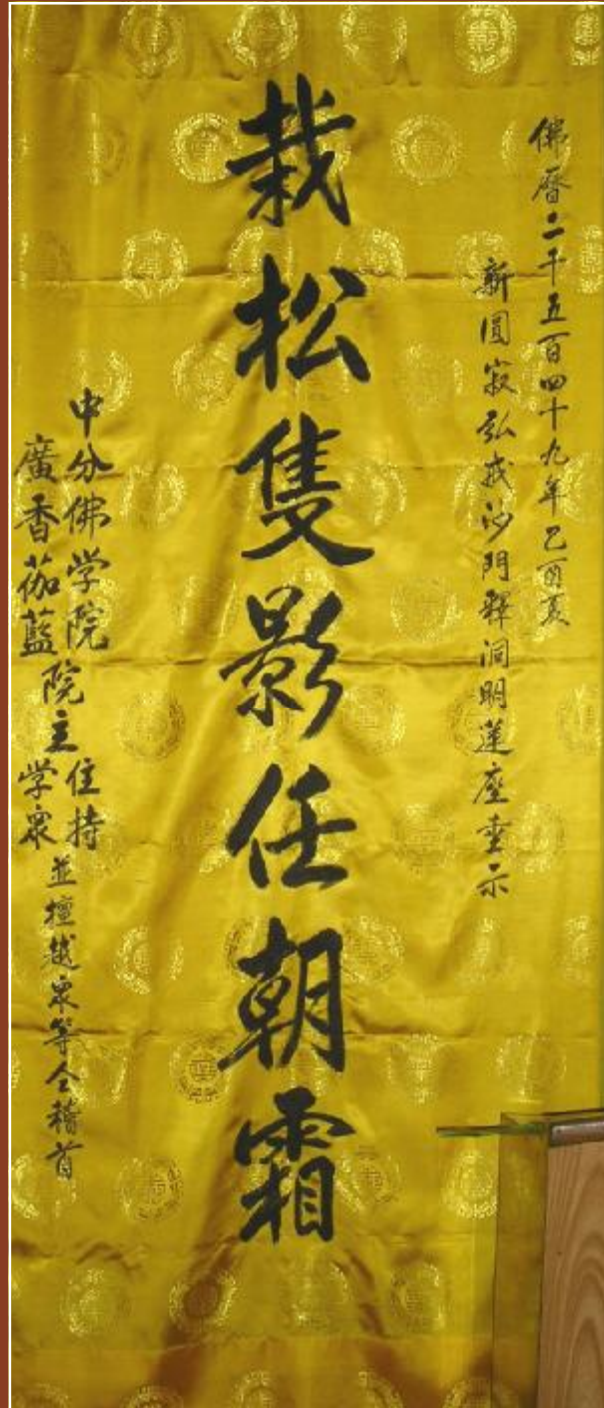 佛曆二千五百四十九年乙酉夏
新圓寂弘戒沙門釋洞明蓮座垂示
栽松隻影任朝霜
中分佛学院主住持
廣香伽藍院学衆
並檀越衆等仝稽首